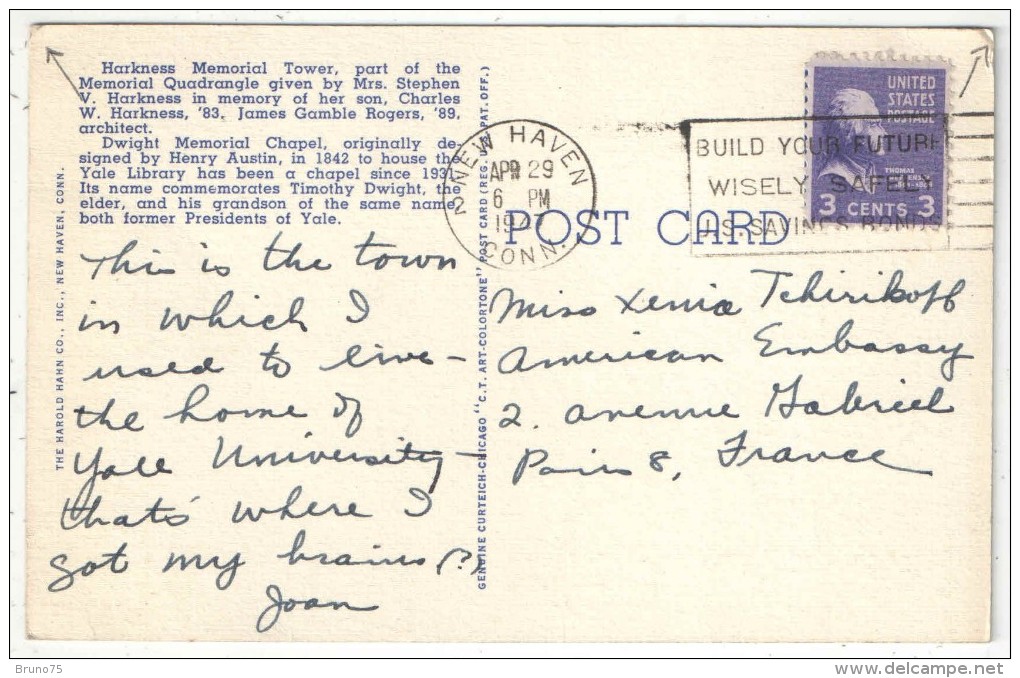 Harkness Memorial Tower, part of the
Memorial Quadrangle given by Mrs. Stephen
V. Harkness in memory of her son, Charles
W. Harkness, '83. James Gamble Rogers, '89,
architect.
Dwight Memorial Chapel, originally de-
signed by Henry Austin, in 1842 to house the
Yale Library has been a chapel since 1931.
Its name commemorates Timothy Dwight, the
elder, and his grandson of the same name,
both former Presidents of Yale.
THE HAROLD HAHN CO., INC., NEW HAVEN, CONN.
This is the town
in which I
used to live –
the home of
Yale University –
that's where I
got my brains (?)
Joan
GENUINE CURTEICH-CHICAGO "C.T. ART-COLORTONE" POST CARD (REG. U.S. PAT. OFF.)
NEW HAVEN
2
APR 29
6 PM
CONN.
POST CARD
BUILD YOUR FUTURE
WISELY SAFELY
U.S. SAVINGS BONDS
UNITED
STATES
POSTAGE
THOMAS
JEFFERSON
3 CENTS 3
Miss Xenia Tchirikoff
American Embassy
2. avenue Gabriel
Paris 8, France
Bruno75
delcampe.net